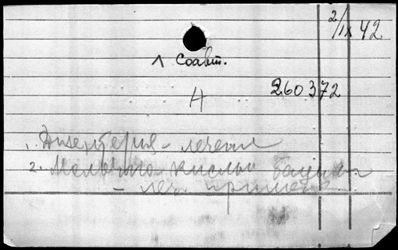 2/IX 42
1 соавт.
Н 260372
1. Дизентерия - лечен
2. Молочно-кислые бацил
- леч. примен